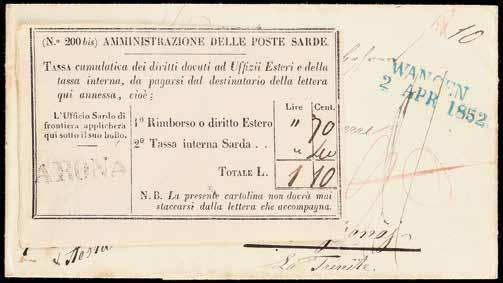 (N.º 200 bis) AMMINISTRAZIONE DELLE POSTE SARDE.
TASSA cumulatica dei diritti dovuti ad Uffizii Esteri e della
tassa interna, da pagarsi dal destinatario della lettera
qui annessa, cioè:
L'Ufficio Sardo di
frontiera applicherà
qui sotto il suo bollo.
ARONA
Lire Cent.
1º Rimborso o diritto Estero " 70
2º Tassa interna Sarda . . "
TOTALE L. 1 10
N.B. La presente cartolina non dovrà mai
staccarsi dalla lettera che accompagna.
10
WANGEN
2 APR 1852
La Trinité.